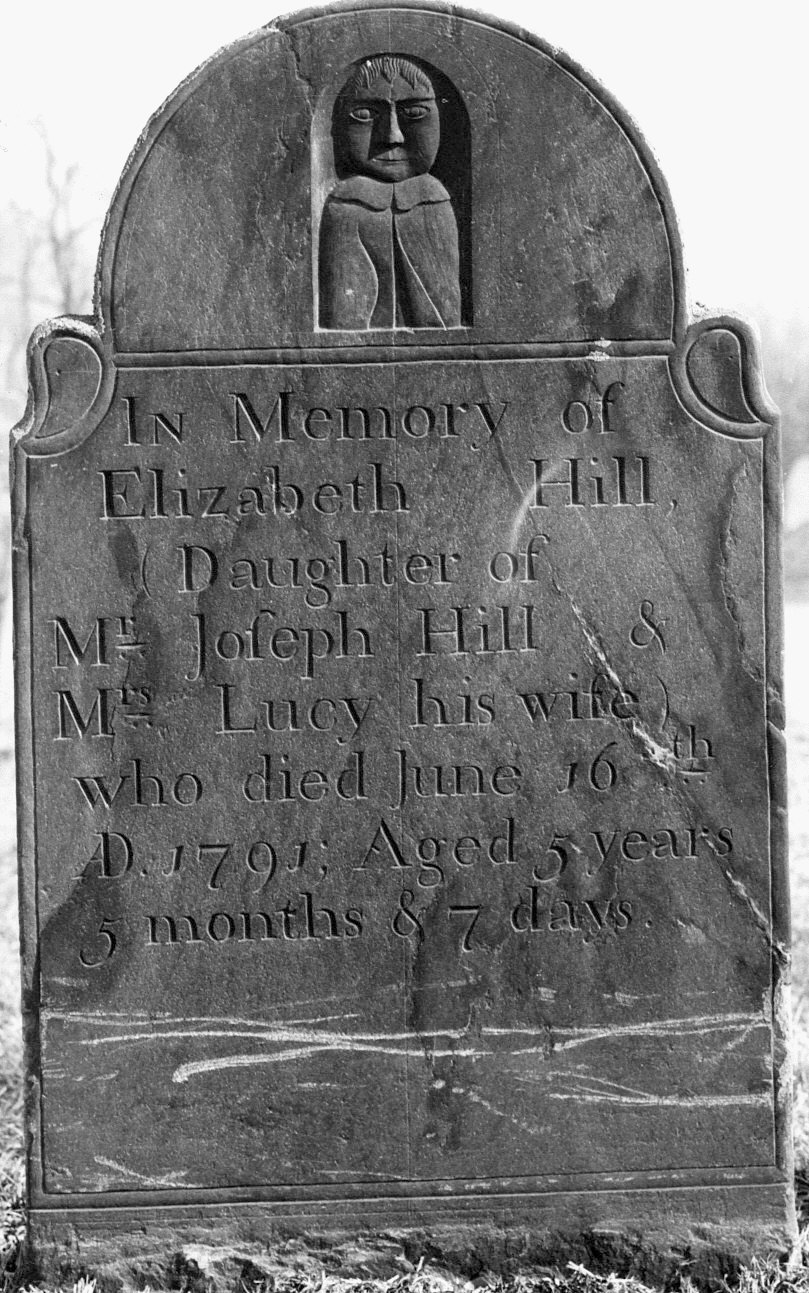 In Memory of
Elizabeth Hill,
(Daughter of
Mr Joſeph Hill &
Mrs Lucy his wife)
who died June 16th
AD. 1791; Aged 5 years
5 months & 7 days.